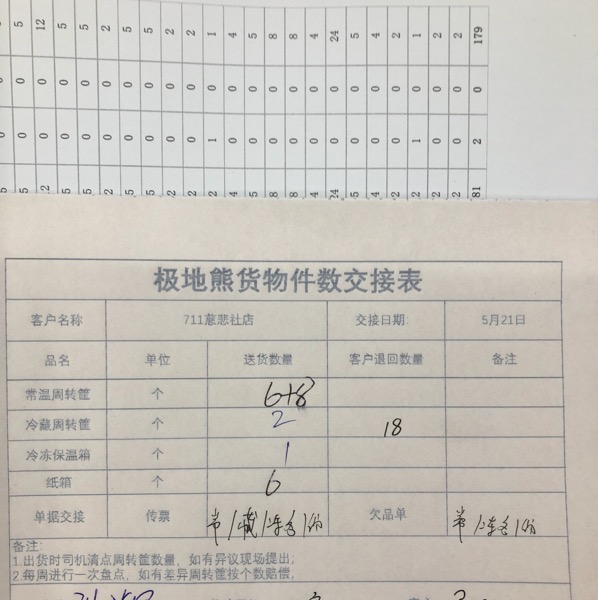 5 12 5 5 2 5 5 2 2 1 4 5 8 8 4 24 5 4 2 1 2 2 179
0 0 0 0 0 0 0 0 0 0 0 0 0 0 0 0 0 0 0 0 0 0 0
0 0 0 0 0 0 0 0 0 1 0 0 0 0 0 0 0 0 0 1 0 0 2
极地熊货物件数交接表
客户名称 711慈悲社店 交接日期: 5月21日
品名 单位 送货数量 客户退回数量 备注
常温周转筐 个 6+8
冷藏周转筐 个 2 18
冷冻保温箱 个 1
纸箱 个 6
单据交接 传票 常/藏/冻各1份 欠品单 常/冻各1份
备注:
1.出货时司机清点周转筐数量，如有异议现场提出;
2.每周进行一次盘点，如有差异周转筐按个数赔偿,